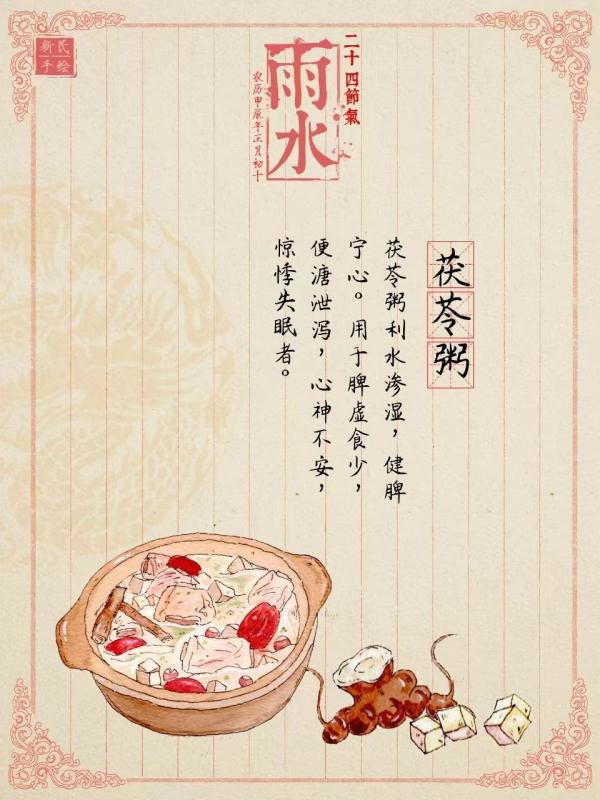 新氏
手绘
二十四節氣
雨水
农历甲辰年正月初十
茯苓粥
茯苓粥利水渗湿，健脾
宁心。用于脾虚食少，
便溏泄泻，心神不安，
惊悸失眠者。